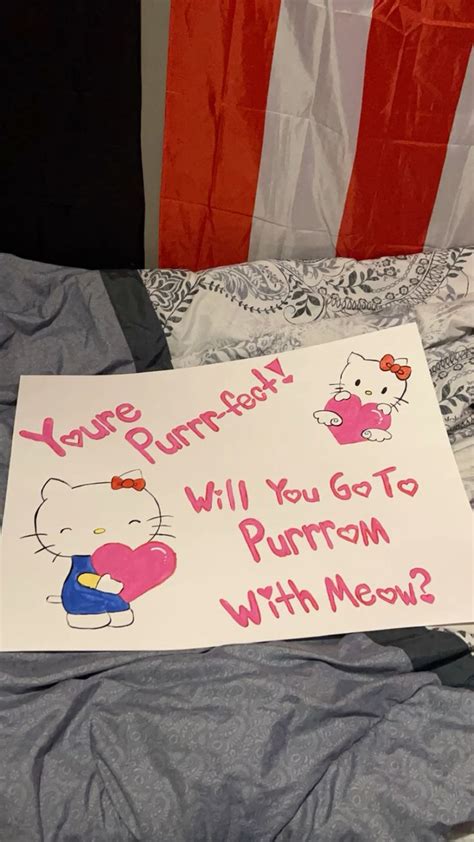 Youre
Purrr-fect!
Will You Go To
Purrrom
With Meow?